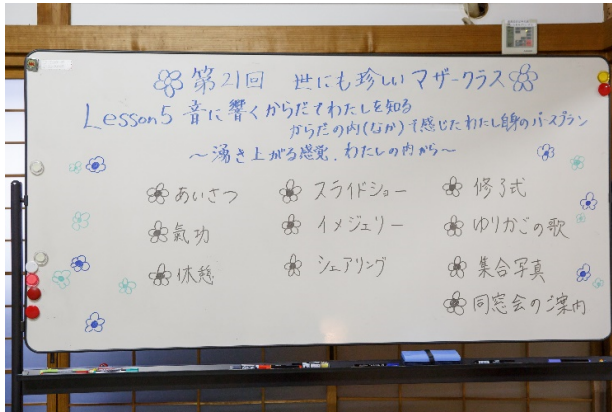 第21回 世にも珍しいマザークラス
Lesson5 音に響くからだでわたしを知る
からだの内(なか)で感じたわたし自身のバースプラン
～湧き上がる感覚、わたしの内から～
あいさつ
氣功
休憩
スライドショー
イメジェリー
シェアリング
修了式
ゆりかごの歌
集合写真
同窓会のご案内